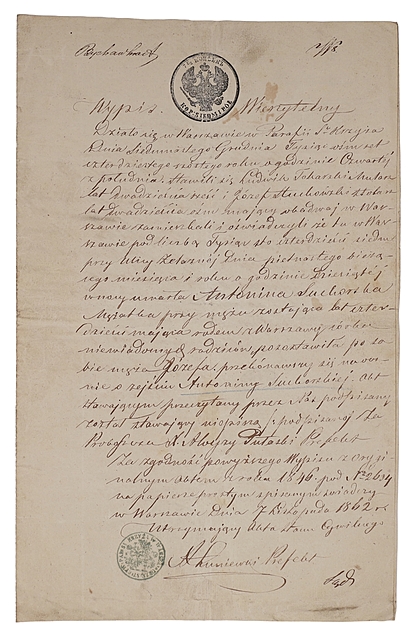 Wypis Wierzytelny
Działo się w Warszawie w Parafii Sgo Krzyża
Dnia Siedmnastego Grudnia Tysiąc ośmset
czterdziestego szóstego roku o godzinie Czwartej
z południa. Stawili się Ludwik
lat dwadzieścia sześć i Józef
lat dwadzieścia ośm mający obadwaj w War-
szawie zamieszkali i oświadczyli że tu w War-
szawie pod liczbą Tysiąc sto czterdzieści siedem
przy Ulicy Żelaznej Dnia piętnastego bieżą-
cego miesiąca i roku o godzinie dziesiątej
w nocy umarła Antonina Suchorska
Mężatka przy mężu zostająca lat czter-
dzieści mająca rodem z Warszawy córka
niewiadomych rodziców, pozostawiła po so-
bie męża Józefa; przekonawszy się naocz-
nie o zejściu Antoniny Suchorskiej Akt
stawającym przeczytany przez Nas podpisany
został stawający niepiszą /:podpisano:/ Za
Proboszcza X. Prefekt
Za zgodność powyższego Wypisu z Ory-
ginalnym aktem z roku 1846 pod No 2634
na papierze prostym spisanym świadczy
w Warszawie Dnia 7 Listopada 1862 r.
Utrzymujący Akta stanu Cywilnego
Prefekt